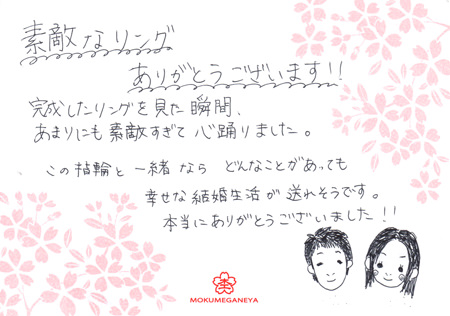 素敵なリング
ありがとうございます!!
完成したリングを見た瞬間、
あまりにも素敵すぎて心踊りました。
この指輪と一緒なら どんなことがあっても
幸せな結婚生活が送れそうです。
本当にありがとうございました!!
杢
MOKUMEGANEYA